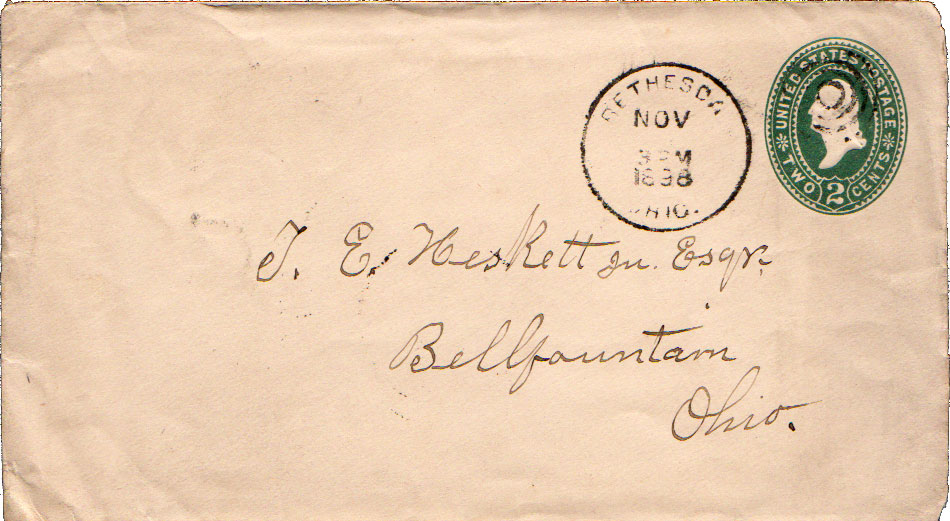 BETHESDA
NOV
3 PM
1898
OHIO.
UNITED STATES POSTAGE
TWO 2 CENTS
J. E. Heskett Jn. Esqr.
Bellfountain
Ohio.